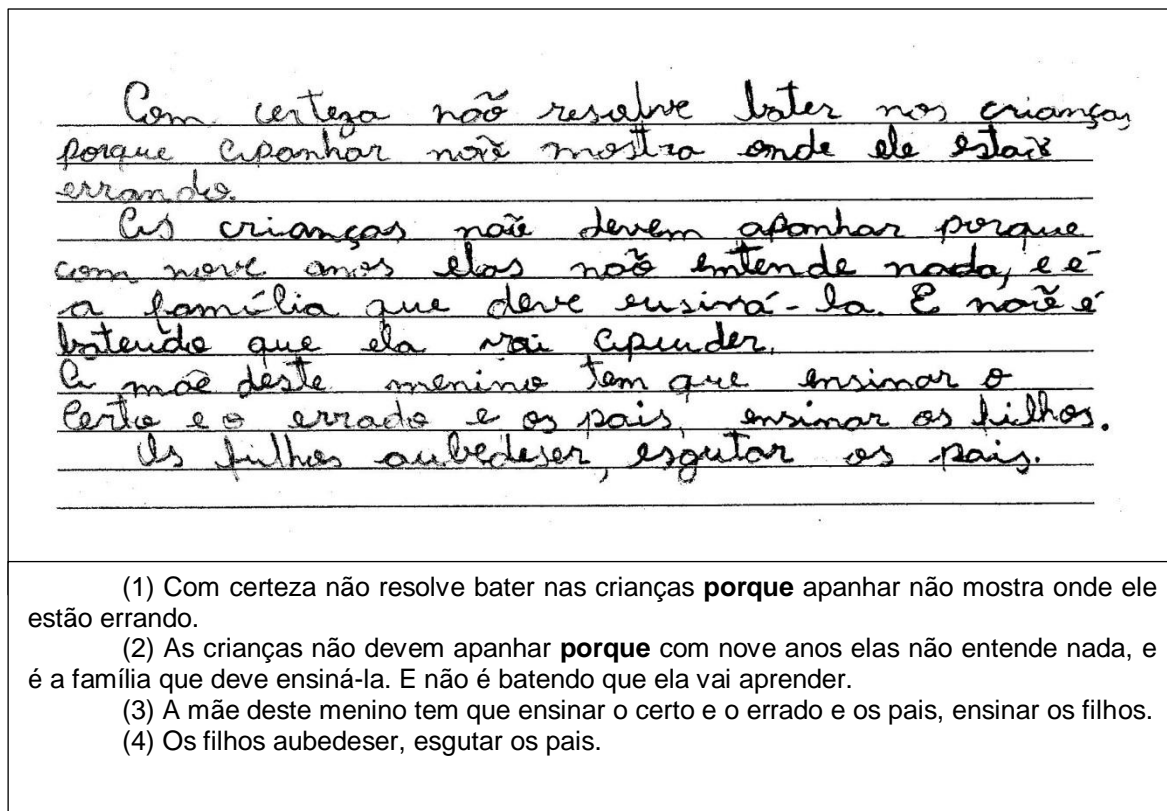 Com certeza não resolve bater nas crianças
porque apanhar não mostra onde ele estão
errando.
As crianças não devem apanhar porque
com nove anos elas não entende nada, e é
a família que deve ensiná-la. E não é
batendo que ela vai aprender.
A mãe deste menino tem que ensinar o
certo e o errado e os pais, ensinar os filhos.
Os filhos aubedeser, esgutar os pais.
(1) Com certeza não resolve bater nas crianças porque apanhar não mostra onde ele
estão errando.
(2) As crianças não devem apanhar porque com nove anos elas não entende nada, e
é a família que deve ensiná-la. E não é batendo que ela vai aprender.
(3) A mãe deste menino tem que ensinar o certo e o errado e os pais, ensinar os filhos.
(4) Os filhos aubedeser, esgutar os pais.